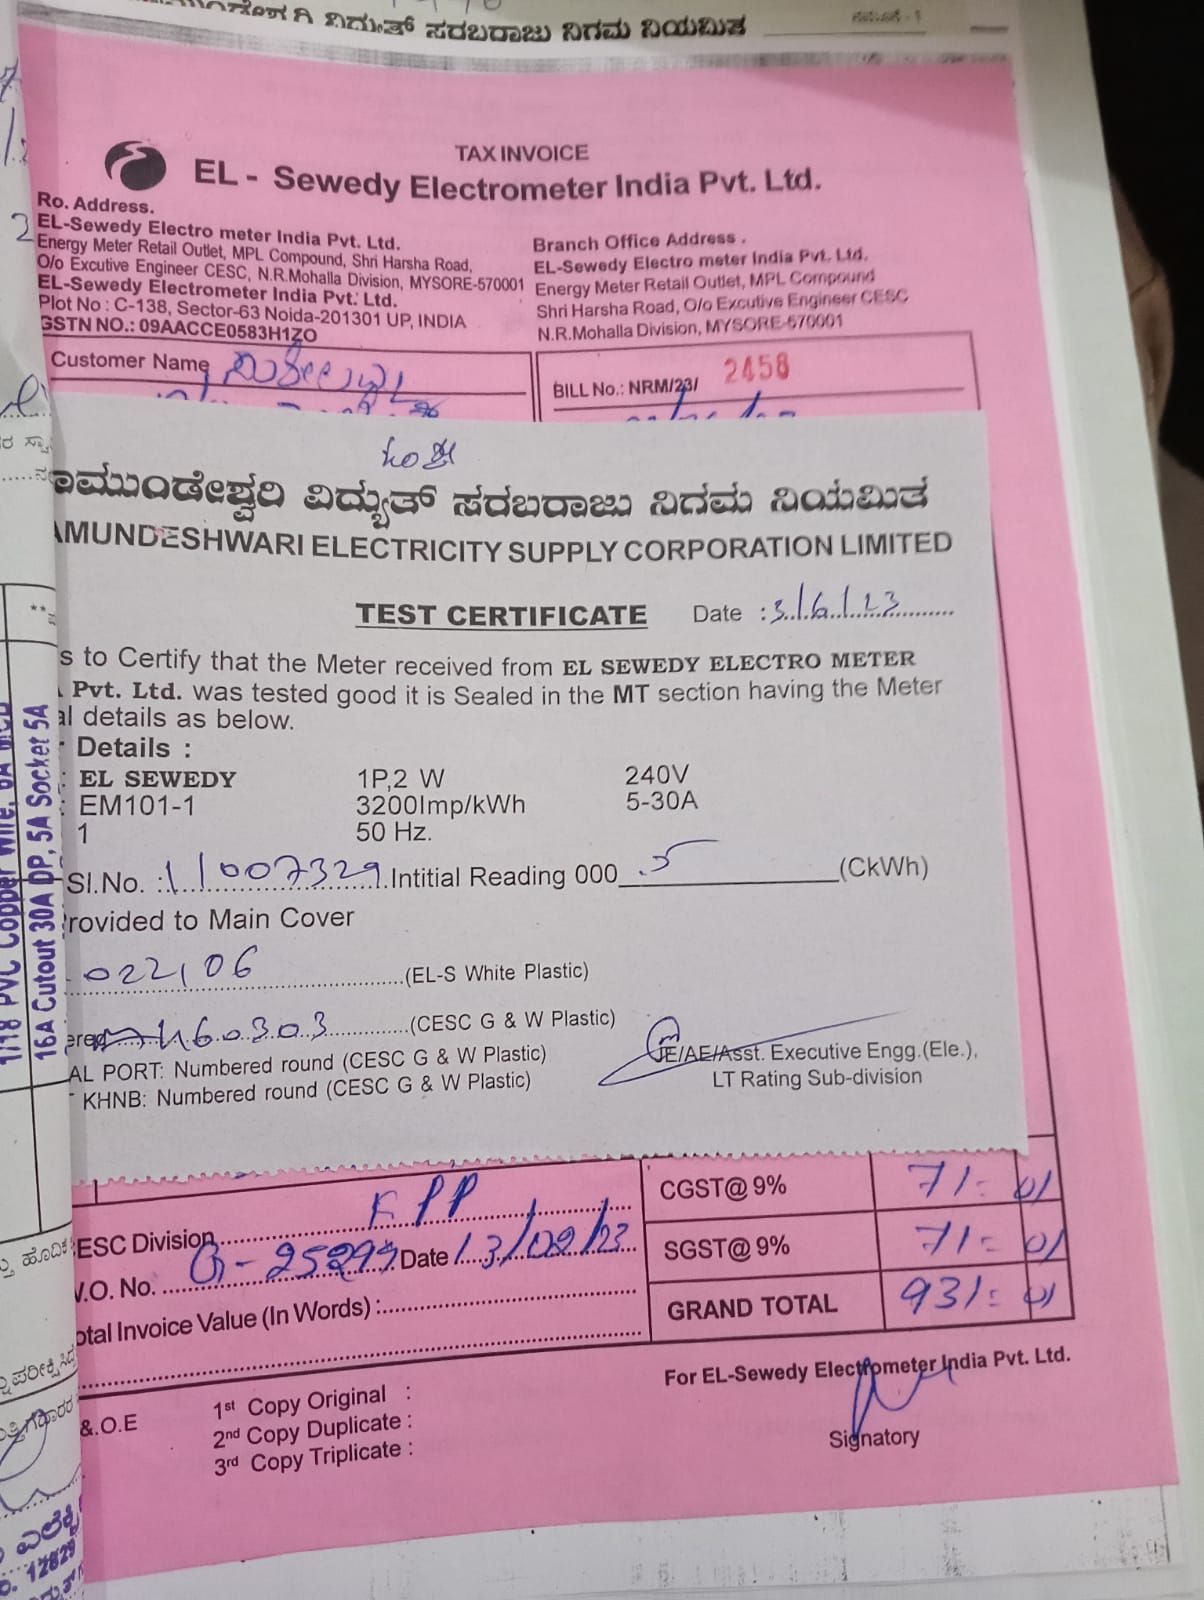 ವಿದ್ಯುತ್ ಸರಬರಾಜು ನಿಗಮ ನಿಯಮಿತ
TAX INVOICE
EL - Sewedy Electrometer India Pvt. Ltd.
Ro. Address.
EL-Sewedy Electro meter India Pvt. Ltd.
Energy Meter Retail Outlet, MPL Compound, Shri Harsha Road,
O/o Excutive Engineer CESC, N.R.Mohalla Division, MYSORE-570001
EL-Sewedy Electrometer India Pvt. Ltd.
Plot No : C-138, Sector-63 Noida-201301 UP, INDIA
GSTN NO.: 09AACCE0583H1ZO
Branch Office Address .
EL-Sewedy Electro meter India Pvt. Ltd.
Energy Meter Retail Outlet, MPL Compound
Shri Harsha Road, O/o Excutive Engineer CESC
N.R.Mohalla Division, MYSORE-570001
Customer Name
BILL No.: NRM/23/ 2458
ಾಮುಂಡೇಶ್ವರಿ ವಿದ್ಯುತ್ ಸರಬರಾಜು ನಿಗಮ ನಿಯಮಿತ
AMUNDESHWARI ELECTRICITY SUPPLY CORPORATION LIMITED
TEST CERTIFICATE Date : 3/6/23
s to Certify that the Meter received from EL SEWEDY ELECTRO METER
Pvt. Ltd. was tested good it is Sealed in the MT section having the Meter
al details as below.
Details :
: EL SEWEDY 1P,2 W 240V
: EM101-1 3200Imp/kWh 5-30A
1 50 Hz.
Sl.No. : 11007329 Intitial Reading 000 .5 (CkWh)
rovided to Main Cover
022106 (EL-S White Plastic)
ered 460303 (CESC G & W Plastic)
AL PORT: Numbered round (CESC G & W Plastic)
KHNB: Numbered round (CESC G & W Plastic)
JE/AE/Asst. Executive Engg.(Ele.),
LT Rating Sub-division
1/18 PVC Copper Wire,
16A Cutout 30A DP, 5A Socket 5A
CGST@ 9% 71=01
SGST@ 9% 71=01
GRAND TOTAL 931=01
ESC Division
V.O. No. Date 13/02/23
otal Invoice Value (In Words) :
&.O.E
1st Copy Original :
2nd Copy Duplicate :
3rd Copy Triplicate :
For EL-Sewedy Electrometer India Pvt. Ltd.
Signatory